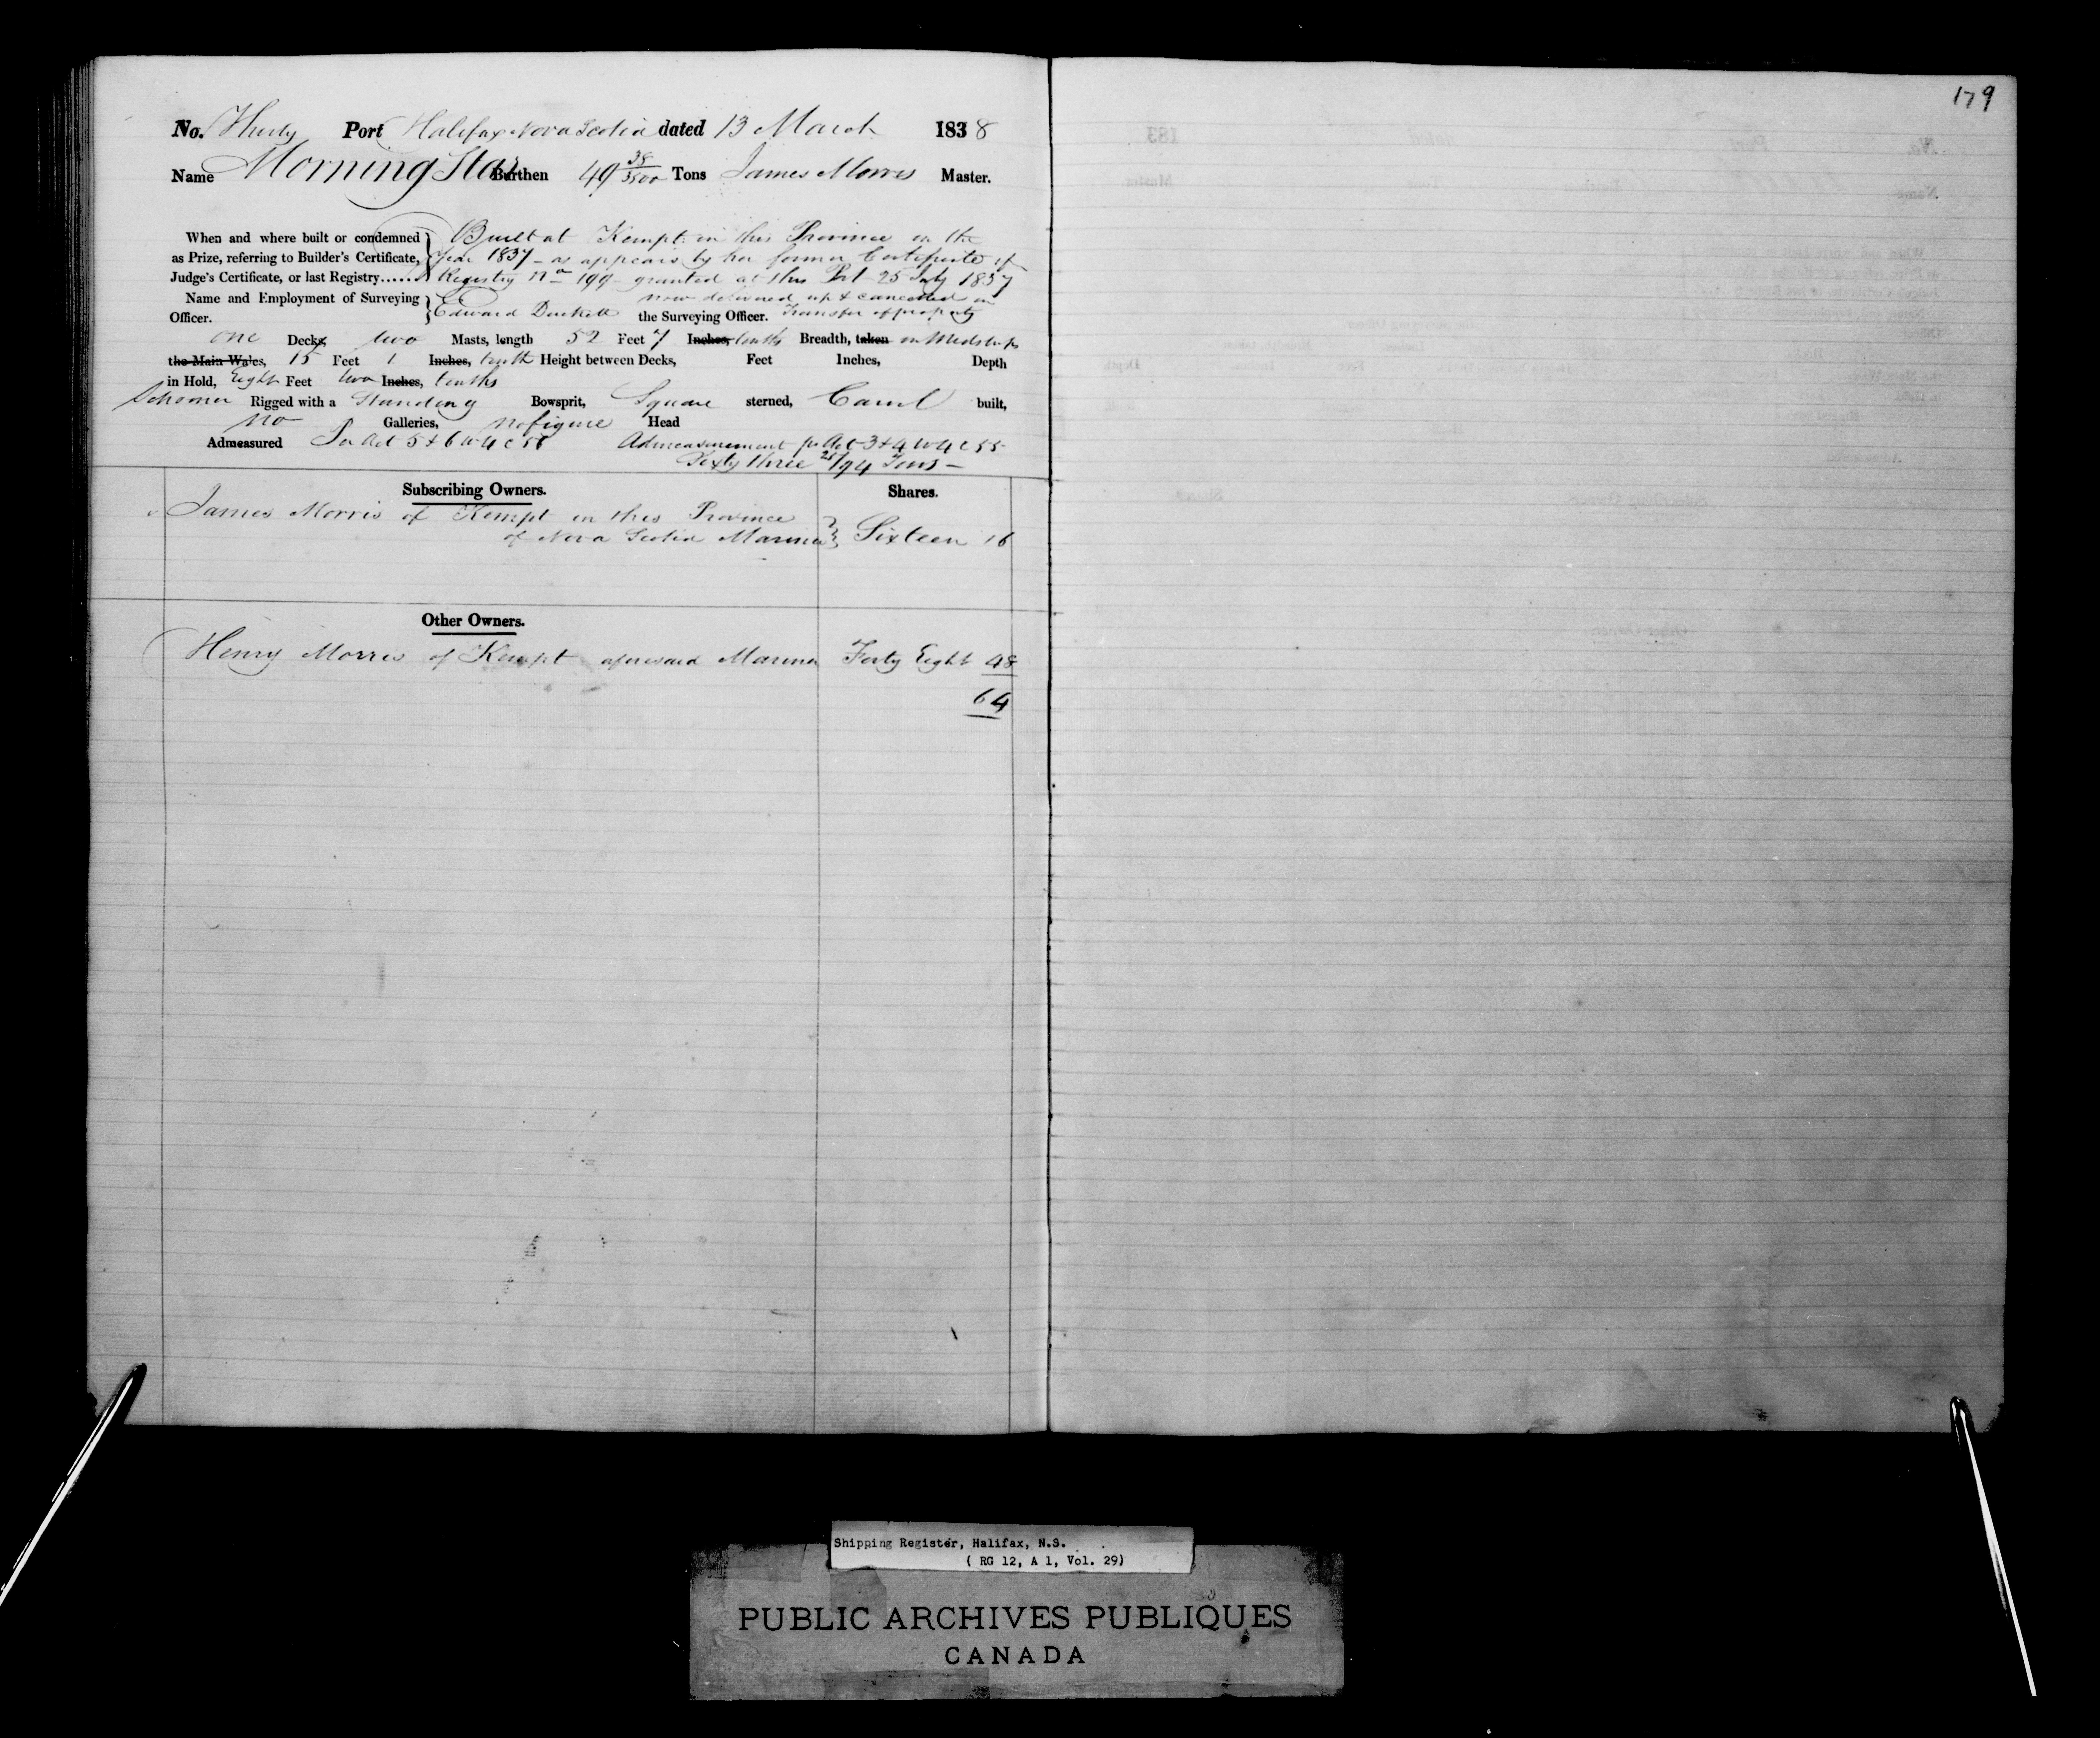 179
No. Thirty Port Halifax Nova Scotia dated 13 March 1838
Name Morning Star Burthen 49 38/3500 Tons James Morris Master.
When and where built or condemned } Built at Kempt in this Province in the
as Prize, referring to Builder's Certificate, } year 1837 - as appears by her former Certificate of
Judge's Certificate, or last Registry...... } Registry No 199 granted at this Port 25 July 1837
Name and Employment of Surveying } now delivered up & cancelled on
Officer. } Edward Duckett the Surveying Officer. Transfer of property
one Decks, two Masts, length 52 Feet 7 Inches, tenths Breadth, taken in Midships
the Main Wales, 15 Feet 1 Inches, tenth Height between Decks, Feet Inches, Depth
in Hold, Eight Feet two Inches, tenths
Schooner Rigged with a Standing Bowsprit, Square sterned, Carvel built,
no Galleries, no figure Head
Admeasured Per Act 5 & 6 W 4 c 56 Admeasurement pr Act 3 & 4 W 4 c 55
Sixty three 25/94 Tons -
Subscribing Owners. Shares.
James Morris of Kempt in this Province
of Nova Scotia Mariner } Sixteen 16
Other Owners.
Henry Morris of Kempt aforesaid Mariner Forty Eight 48
64
Shipping Register, Halifax, N.S.
( RG 12, A 1, Vol. 29)
PUBLIC ARCHIVES PUBLIQUES
CANADA